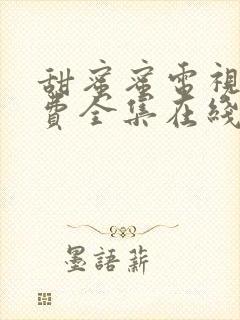 甜蜜蜜電視
費全集在綫
墨語薪